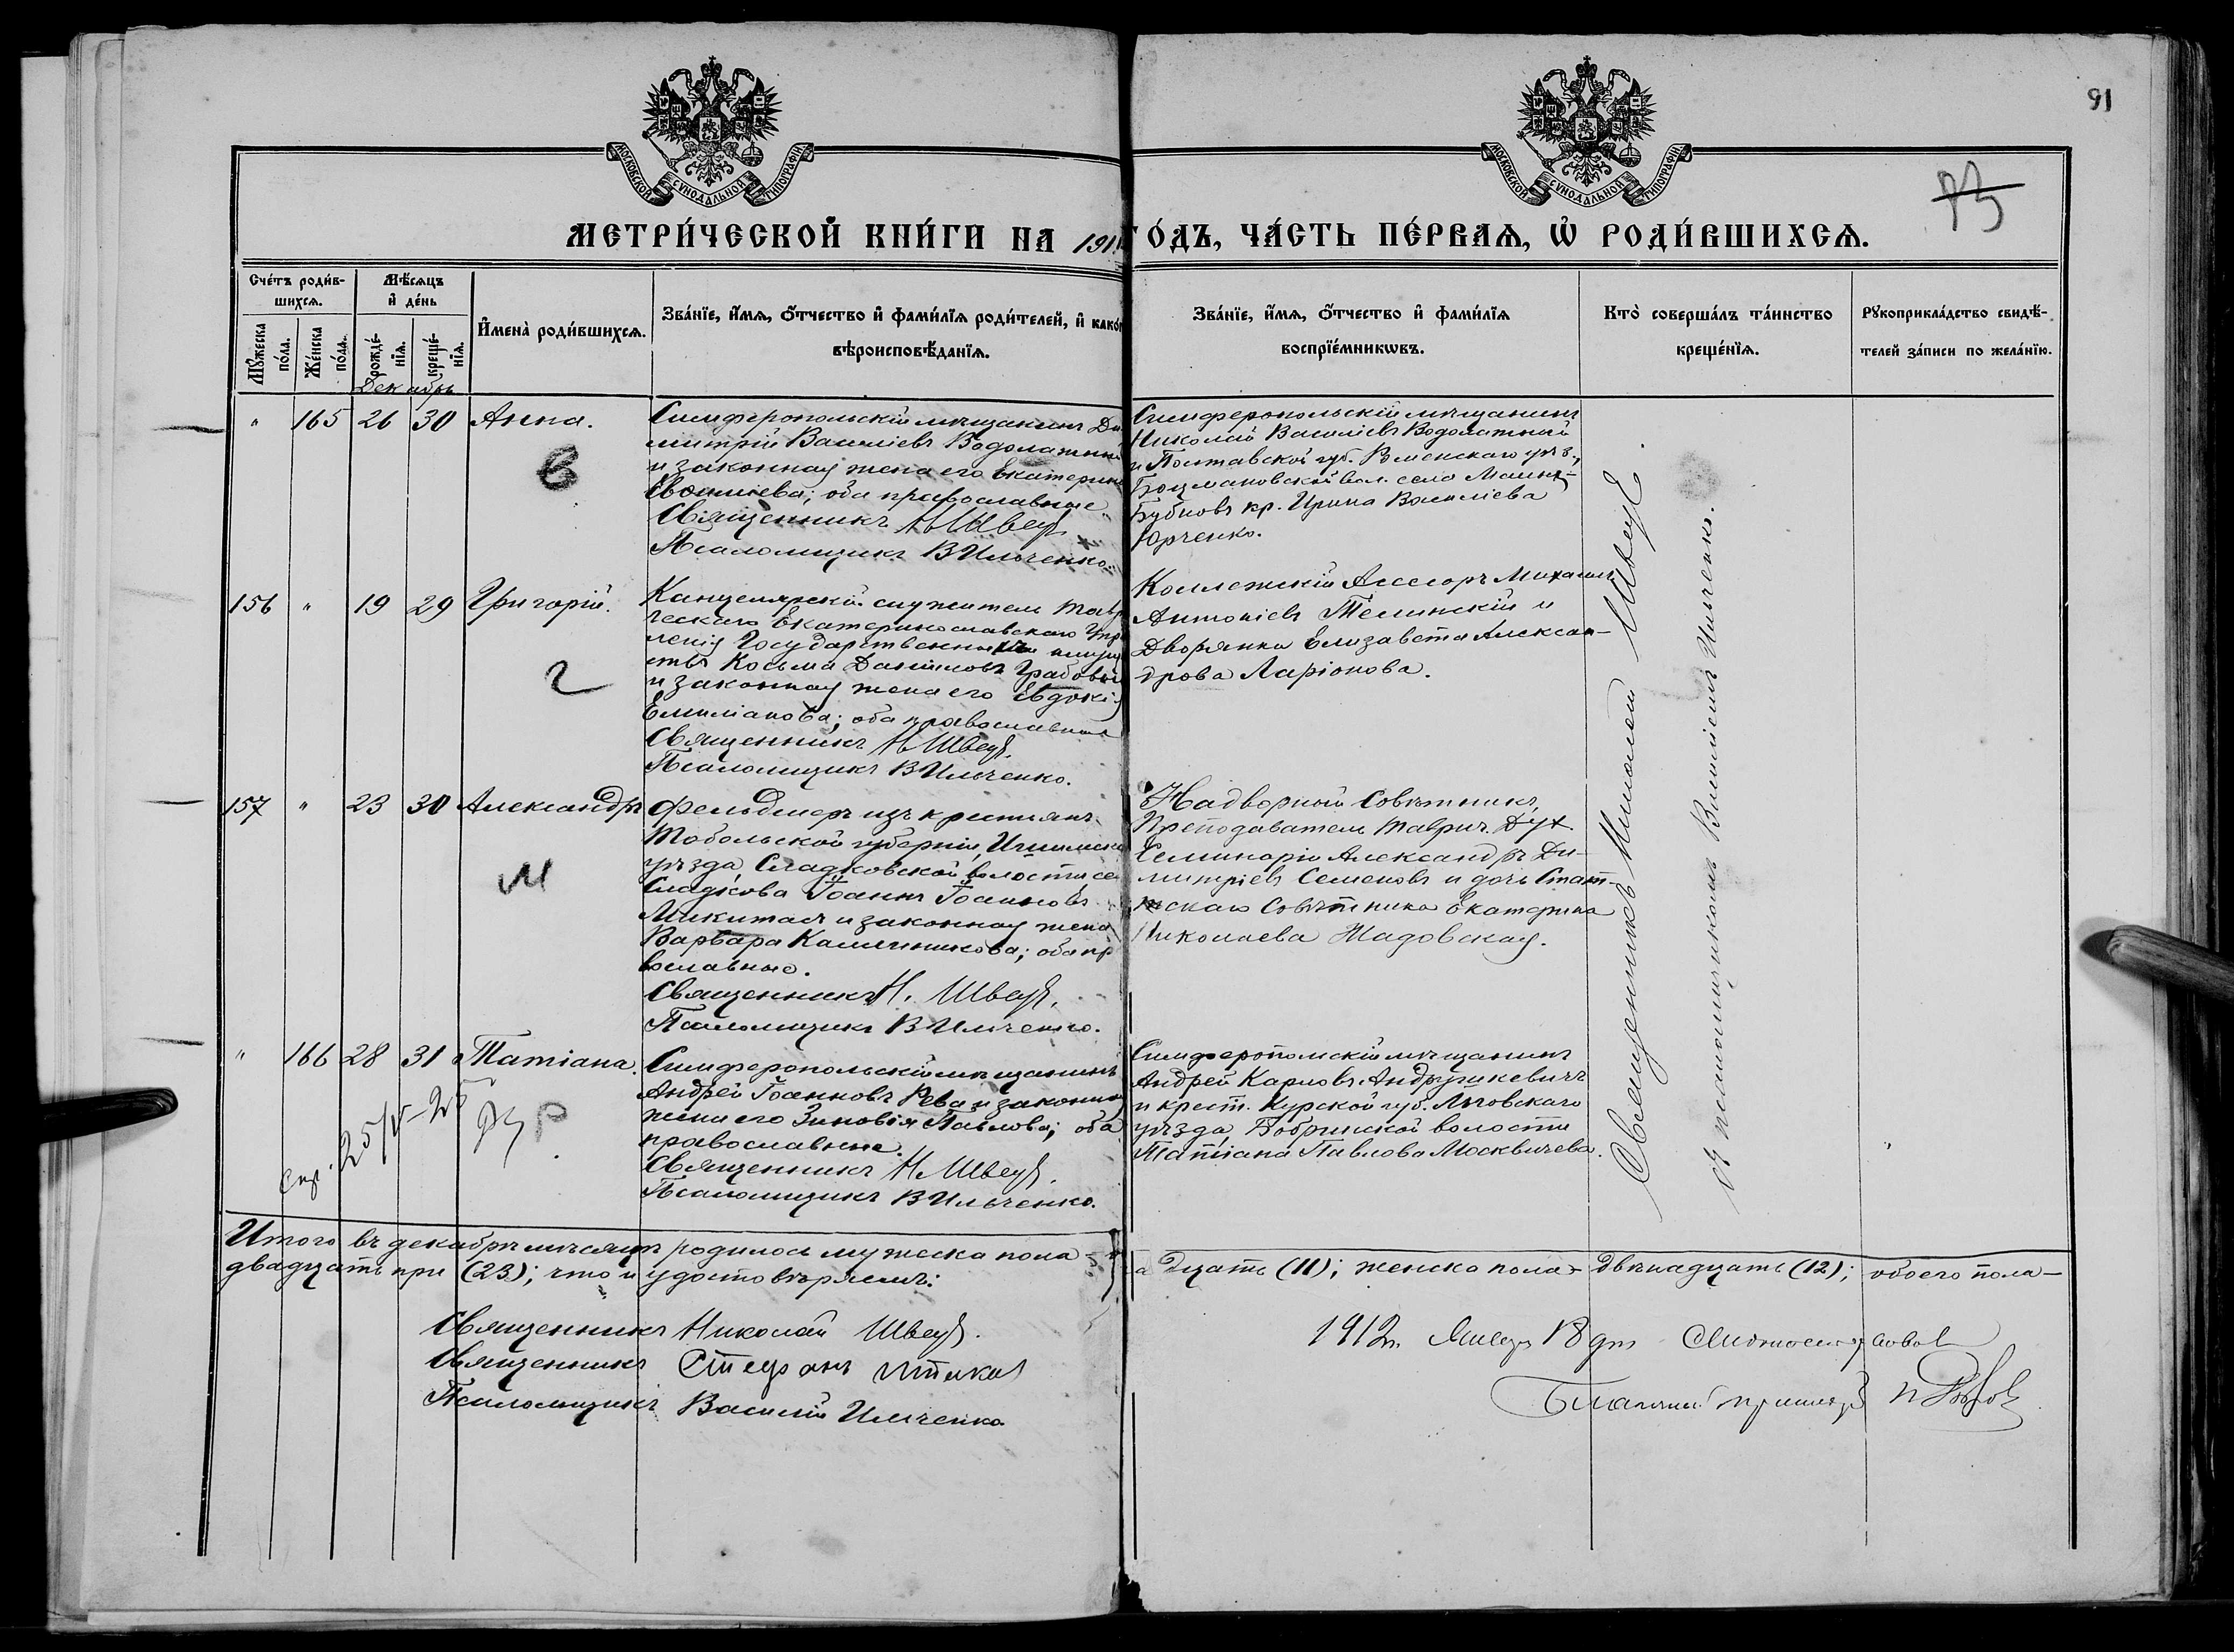 91
МОСКОВСКОЙ СѴНОДАЛЬНОЙ ТИПОГРАФІИ
МОСКОВСКОЙ СѴНОДАЛЬНОЙ ТИПОГРАФІИ
МЕТРИ́ЧЕСКОЙ КНИ́ГИ НА 1911 ГО́ДЪ, ЧА́СТЬ ПЕ́РВАЯ, Ѡ҆ РОДИ́ВШИХСЯ.
Сче́тъ роди́в-
шихся.
Мѣ́сяцъ
и҆ де́нь
Мꙋ́жеска
по́ла.
Же́нска
по́ла.
рожде́-
нїя.
креще́-
нїя.
И҆мена̀ роди́вшихся.
Зва́нїе, и҆́мя, ѻ҆́тчество и҆ фами́лїя роди́телей, и҆ како́
вѣроисповѣ́данїя.
Зва́нїе, и҆́мя, ѻ҆́тчество и҆ фами́лїя
воспрїе́мникѡвъ.
Кто̀ соверша́лъ та́инство
креще́нїя.
Рꙋкоприкла́дство свидѣ́-
телей за́писи по жела́нїю.
Декабрь
" 165 26 30 Анна.
В
Симферопольскій мѣщанинъ Ди
митрій Васильевъ Водолажный
и законная жена его Екатерина
православные.
Священникъ Н Швецъ
Псаломщикъ В Ильченко.
Симферопольскій мѣщанинъ
Николай Васильевъ Водолажный
и Полтавской губ. Роменскаго уѣз.,
вол. села
Бубновъ кр. Ирина Васильева
Юрченко.
156 " 19 29 Григорій.
Г
Канцелярскій служитель Таври
ческаго Екатеринославскаго Упра
ленія Государственными имуще
ствъ Косьма Даниловъ Грабовый
и законная жена его Евдокія
Емиліанова; оба православные
Священникъ Н Швецъ.
Псаломщикъ В Ильченко.
Коллежскій Асесоръ Михаилъ
Антоніевъ Телинскій и
Дворянка Елизавета Алексан-
дрова Ларіонова.
157 " 23 30 Александръ
М
Фельдшеръ изъ крестьянъ
Тобольской губерніи, Ишимска
уѣзда, Сладковской волости се
Сладкова Іоаннъ Іоанновъ
Микитасъ и законная жена
Варвара Калинникова; оба пр
вославные.
Священникъ Н. Швецъ.
Псаломщикъ В Ильченко.
Надворный Совѣтникъ,
Преподаватель Таврич. Дух.
Семинаріи Александръ Ди-
митріевъ Семеновъ и дочь Стат-
скаго Совѣтника Екатерина
Николаева Жадовская.
" 166 28 31 Татіана.
25/V-25
Р
Симферопольскій мѣщанинъ
Андрей Іоанновъ Рева и законная
жена его Зиновія Павлова; оба
православные.
Священникъ Н. Швецъ.
Псаломщикъ В Ильченко.
Симферопольскій мѣщанинъ
Андрей Карповъ Андрушкевичъ
и крест. Курской губ. Льговскаго
уѣзда, Бобринской волости
Татіана Павлова Москвичева.
Священникъ Николай Швецъ
съ псаломщикомъ Василіемъ Ильченко.
Итого въ декабрѣ мѣсяцѣ родилось мужеска пола - адцать (11); женска пола - двѣнадцать (12); обоего пола -
двадцать три (23); что и удостовѣряемъ:
Священникъ Николай Швецъ.
Священникъ Стефанъ
Псаломщикъ Василій Ильченко
1912 г. Января 18 дня